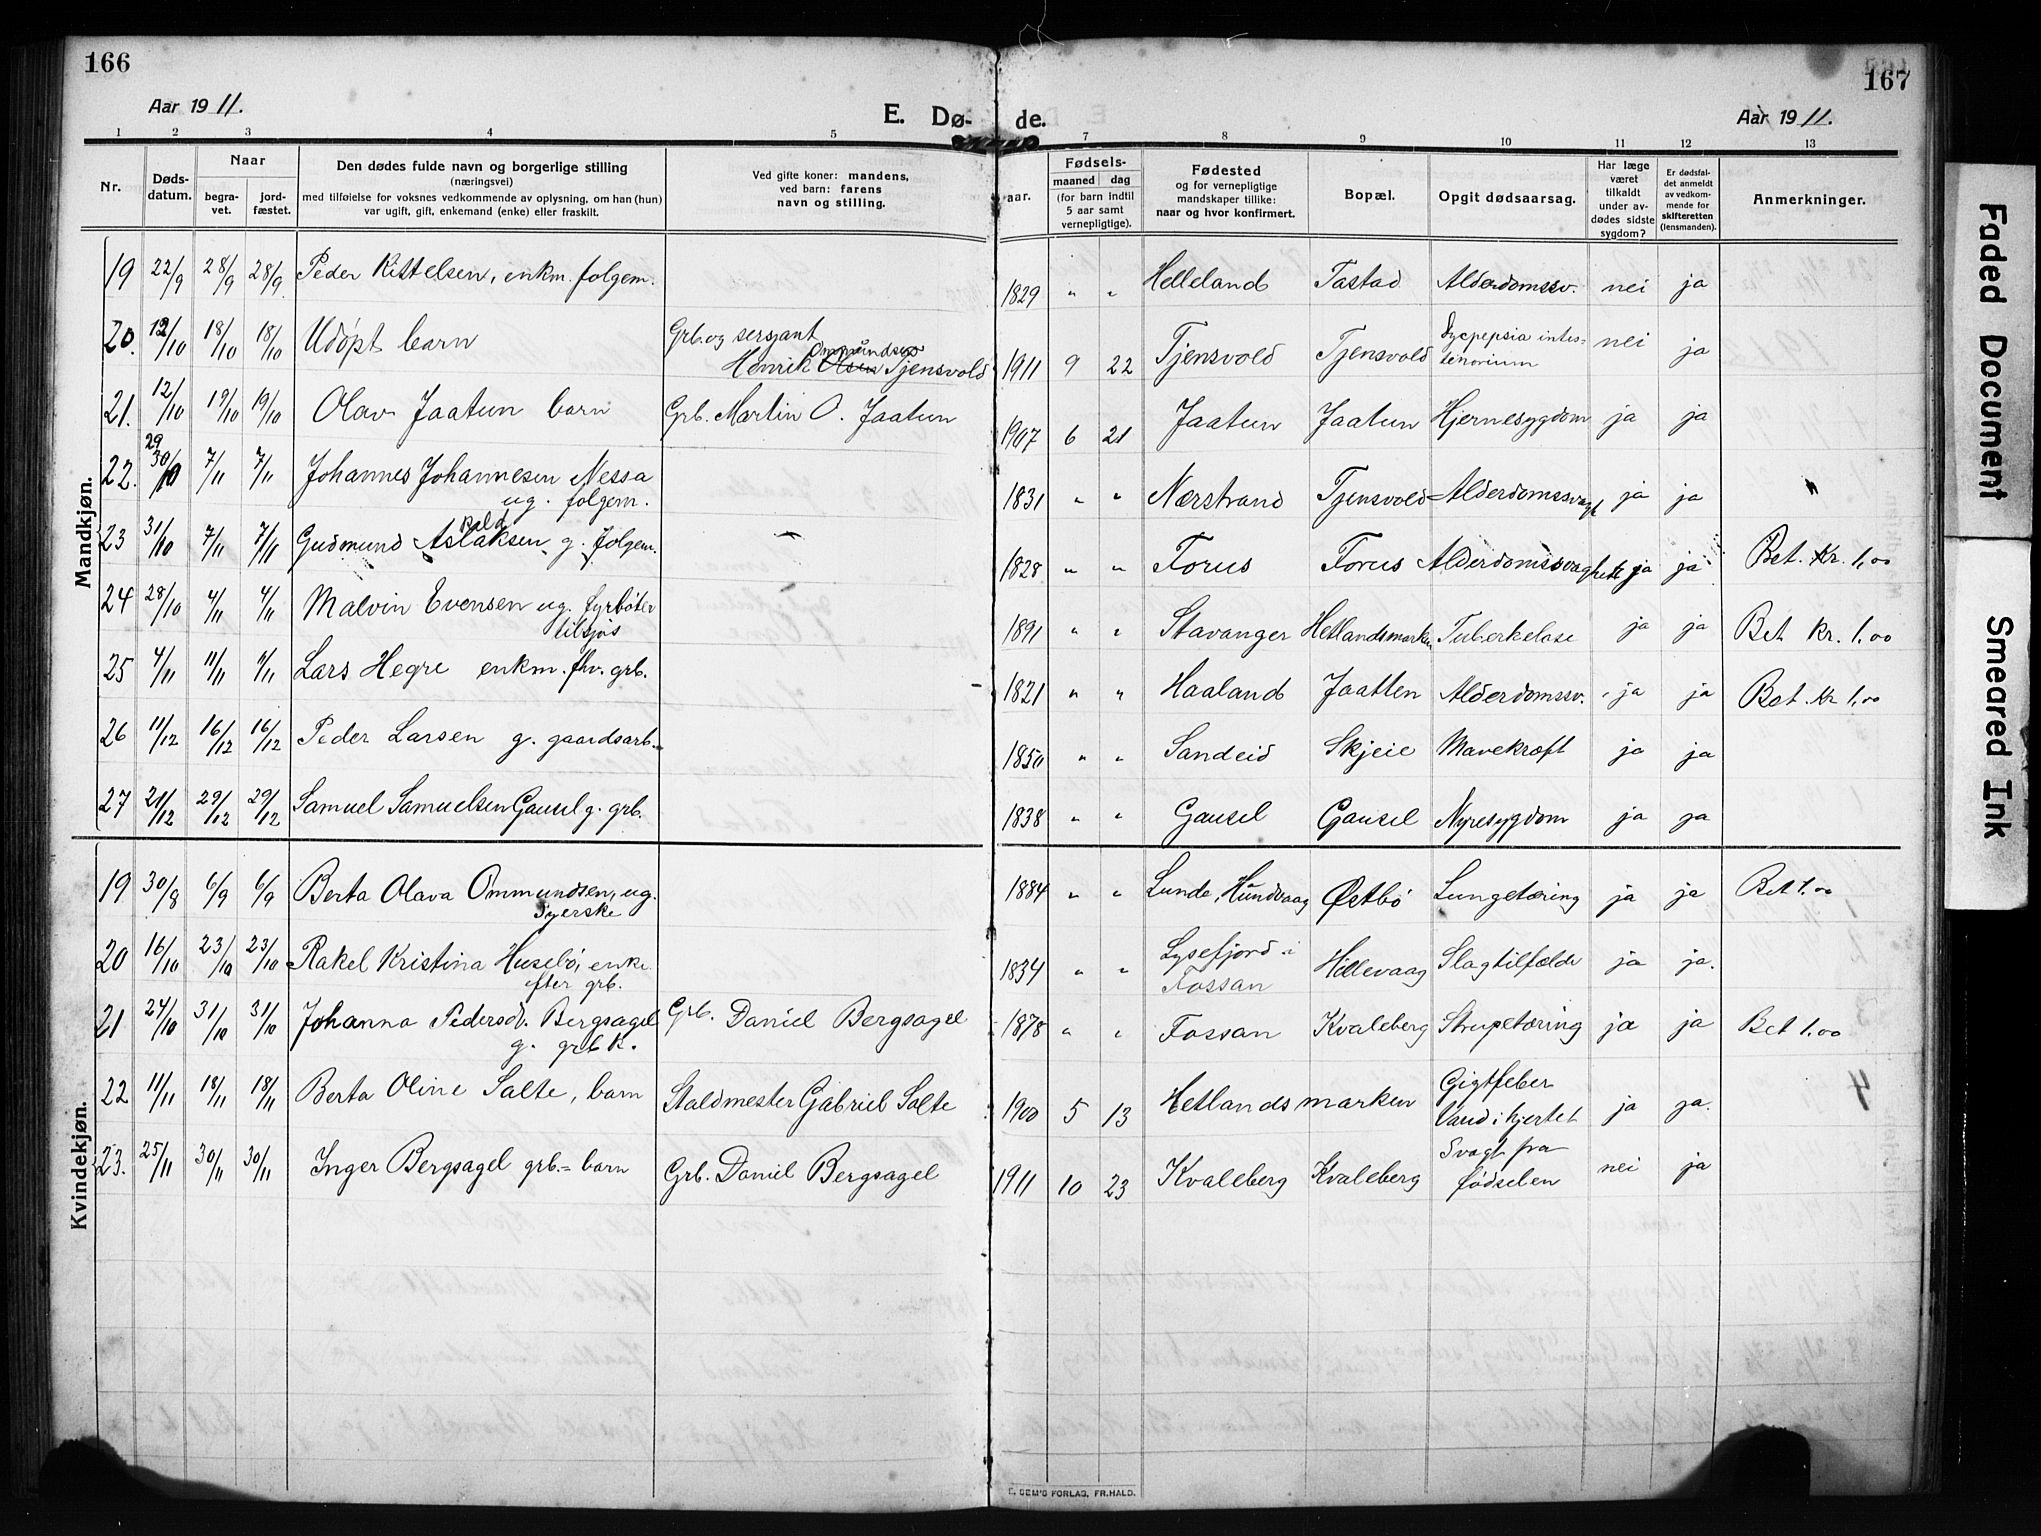 166
167
Aar 1911.
E. Dø-
de.
Aar 1911.
1 2 3 4 5 7 8 9 10 11 12 13
Nr.
Døds-
datum.
Naar
begra-
vet.
jord-
fæstet.
Den dødes fulde navn og borgerlige stilling
(næringsvei)
med tilføielse for voksnes vedkommende av oplysning, om han (hun)
var ugift, gift, enkemand (enke) eller fraskilt.
Ved gifte koner: mandens,
ved barn: farens
navn og stilling.
aar.
Fødsels-
maaned dag
(for barn indtil
5 aar samt
vernepligtige).
Fødested
og for vernepligtige
mandskaper tillike:
naar og hvor konfirmert.
Bopæl.
Opgit dødsaarsag.
Har læge
været
tilkaldt
under av-
dødes sidste
sygdom?
Er dødsfal-
det anmeldt
av vedkom-
mende for
skifteretten
(lensmanden).
Anmerkninger.
Mandkjøn.
19 22/9 28/9 28/9 Peder Kittelsen, enkm. folgem. 1829 " " Helleland Tastad Alderdomssv. nei ja
20. 12/10 18/10 18/10 Udøpt barn Grb. og sersjant
Ommundsen
Henrik Olsen Tjensvold 1911 9 22 Tjensvold Tjensvold Dyspepsia intes-
tinorium nei ja
21. 12/10 19/10 19/10 Olav Jaatun barn Grb. Martin O. Jaatun 1907 6 21 Jaatun Jaatun Hjernesygdom ja ja
29
22. 30/10 7/11 7/11 Johannes Johannesen Nessa
ug. folgem. 1831 " " Nærstrand Tjensvold Alderdomssvagh ja ja "
23 31/10 7/11 7/11 Gudmund Aslaksen g. folgem. 1828 " " Forus Forus Alderdomssvaghett ja ja Bet. Kr. 1,00
24 28/10 4/11 4/11 Malvin Evensen ug. fyrbøter
tilsjøs 1891 " " Stavanger Hetlandsmarken Tuberkelose ja ja Bet Kr. 1.00
25 4/11 11/11 11/11 Lars Hegre enkm. fhv. grb. 1821 " " Haaland Jaatten Alderdomssv. ja ja Bet. Kr 1,00
26 11/12 16/12 16/12 Peder Larsen g. gaardsarb. 1850 " " Sandeid Skjeie Mavekræft ja ja
27 21/12 29/12 29/12 Samuel Samuelsen Gausel g. grb. 1838 " " Gausel Gausel Nyresygdom ja ja
Kvindekjøn.
19 30/8 6/9 6/9 Berta Olava Ommundsen, ug.
Syerske 1884 " " Lunde, Hundvaag Østbø Lungetæring ja ja Bet 1.00
20 16/10 23/10 23/10 Rakel Kristina Husebø, enke
efter grb. 1834 " " Lysefjord i
Fossan Hillevaag Slagtilfælde ja ja.
21 24/10 31/10 31/10 Johanna Pedersd. Bergsagel
g. grb k. Grb. Daniel Bergsagel 1878 " " Fossan Kvaleberg Strupetæring ja ja Bet 1.00
22 11/11 18/11 18/11 Berta Oline Salte, barn Staldmester Gabriel Salte 1900 5 13 Hetlandsmarken Gigtfeber
Vand i hjertet ja ja.
23. 25/11 30/11 30/11 Inger Bergsagel grb.= barn Grb. Daniel Bergsagel 1911 10 23 Kvaleberg Kvaleberg Svagt fra
fødselen nei ja
E. SEM'S FORLAG, FR.HALD.
Faded Document
Smeared Ink